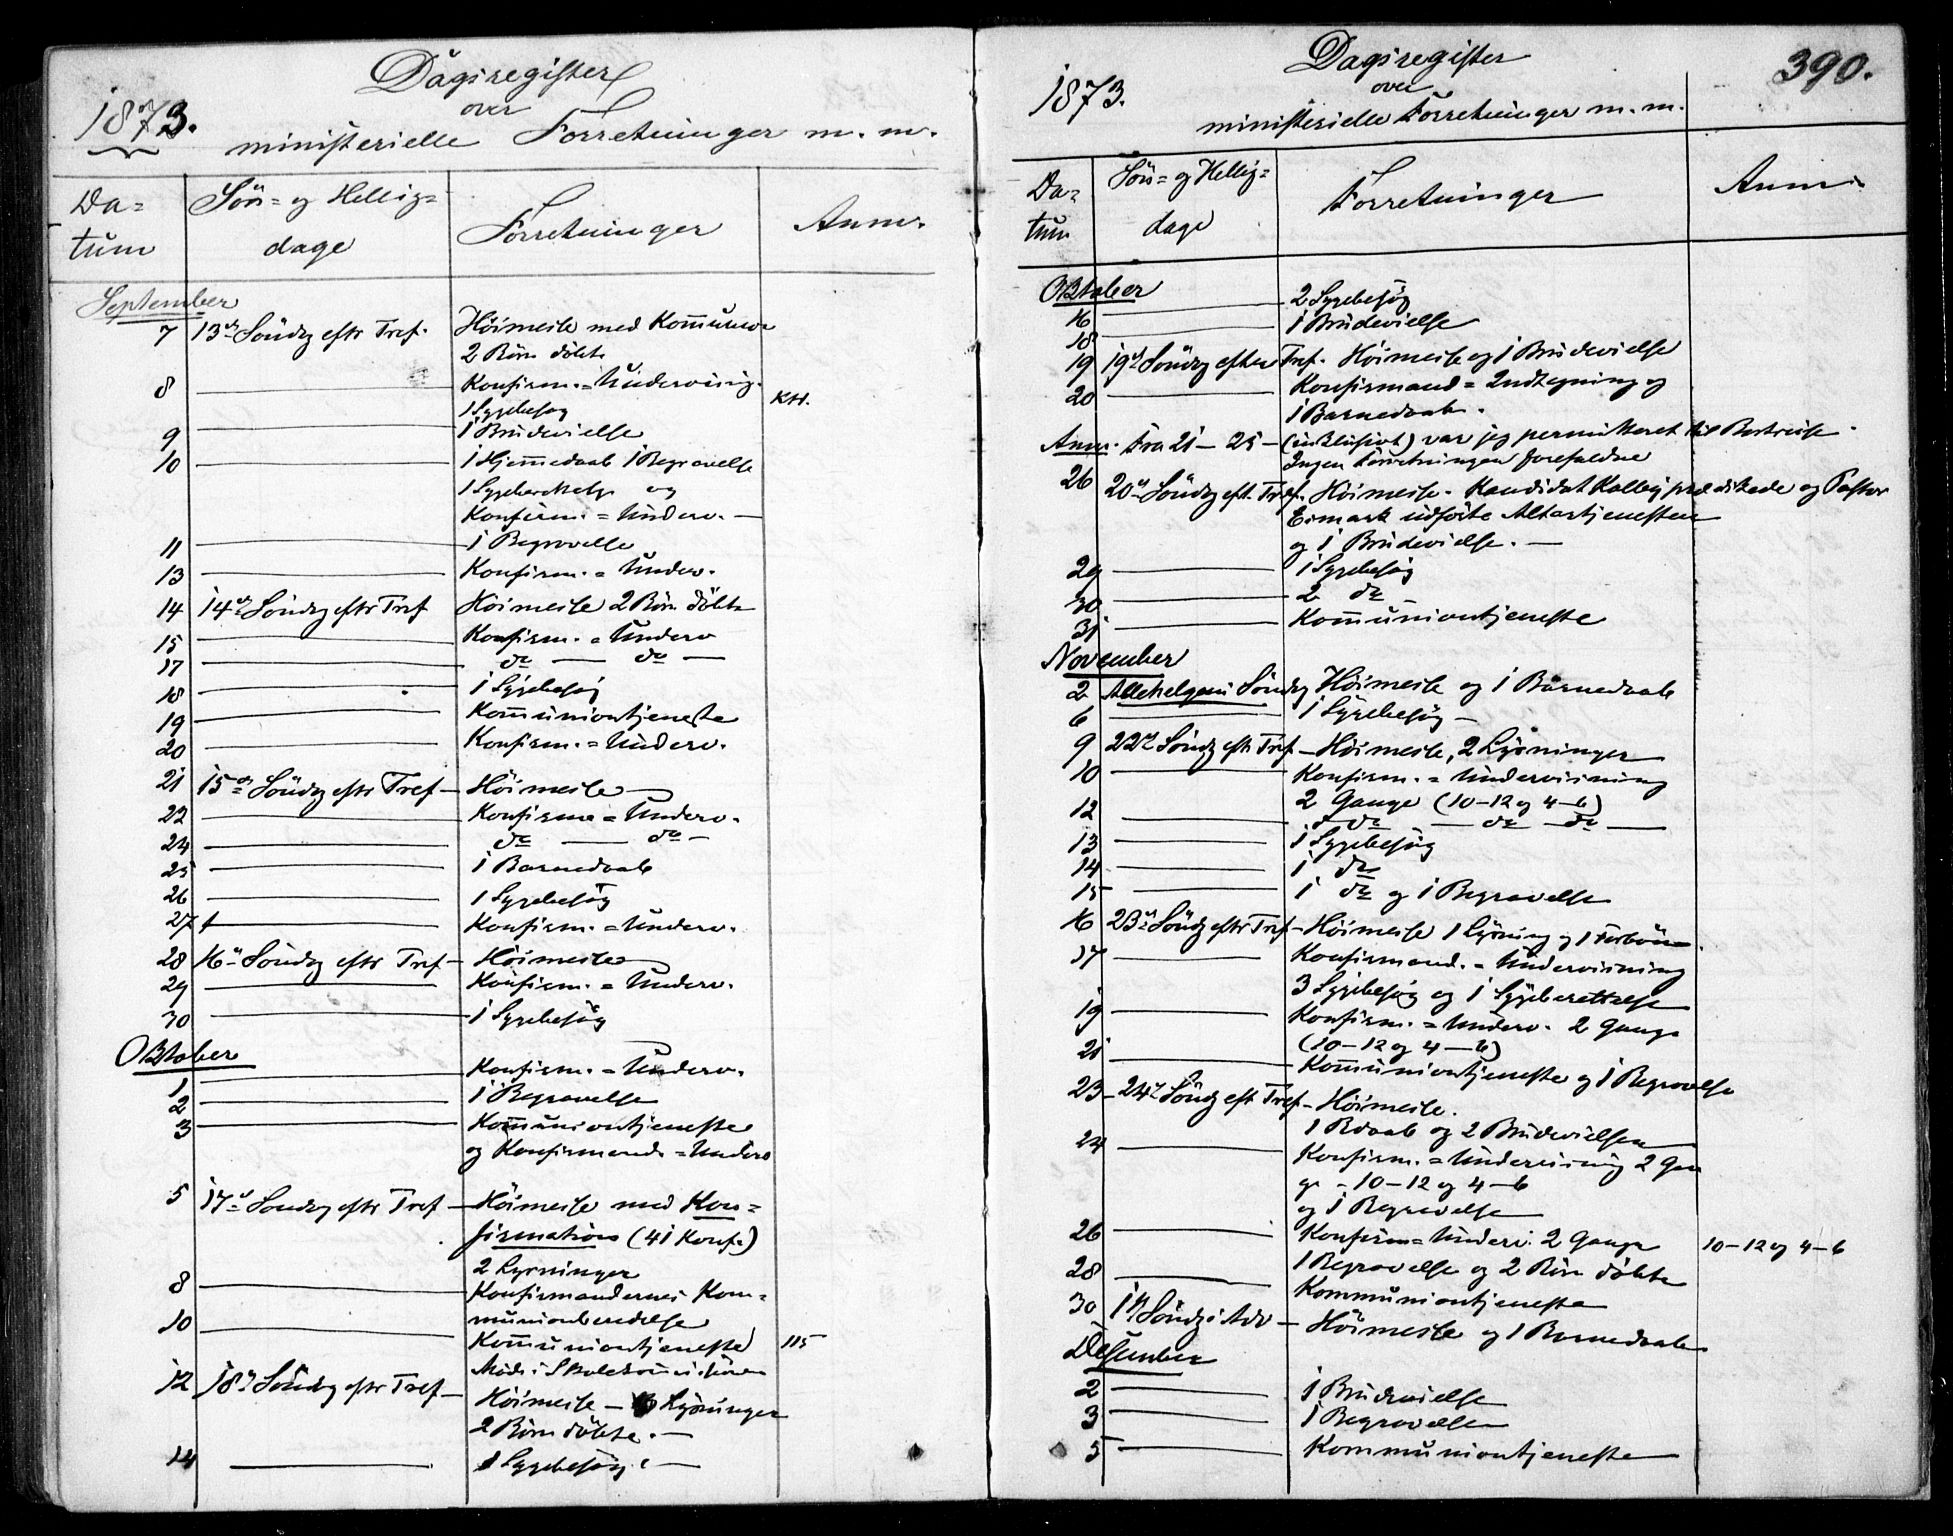 Dagsregister
over
1873.
ministerielle Forretninger m. m.
Da=
tum
Sön= og Hellig=
dage
Forretninger
Anm.
September
7 13de Söndg eftr Tref. Höimesse med Kom̄union
2 Börn döbte
8 Konfirm.=Undervisnig.
1 Sygebesög
9 1 Brudevielse
10 1 Hjem̄edaab 1 Begravelse
og
Konfirm.=Underv.
11 1 Begravelse
13 Konfirm.=Underv.
14 14de Söndg eftr Tref Höimesse 2 Börn döbte
15 Konfirm.=Underv
17 do do
18 1 Sygebesög
19 Kom̄uniontjeneste
20 Konfirm.=Underv.
21 15de Söndg eftr Tref Höimesse
22 Konfirm=Underv.
24 do do
25 1 Barnedaab
26 1 Sygebesög
27 Konfirm.=Underv.
28 16de Söndg eftr Tref Höimesse
29 Konfirm.=Underv.
30 1 Sygebesög
Oktober
1 Konfirm.=Underv.
2 1 Begravelse
3 Kom̄uniontjeneste
og Konfirmand.=Underv
5 17de Söndag eftr Tref Höimesse med Kon=
firmation (41 Konf.)
2 Lysninger
8 Konfirmandernes Kom=
munionberedelse
10 Kom̄uniontjeneste 115
Möde i Skolekom̄isionen
12 18de Söndg eftr Tref Höimesse Lysninger
2 Börn döbte.
14 1 Sygebesög.
390.
Dagsregister
over
1873.
ministerielle Forretninger m. m.
Da=
tum
Sön= og Hellig=
dage
Forretninger
Anm.
Oktober
16 2 Sygebesög
18 1 Brudevielse
19 19de Söndg efter Tref. Höimesse og 1 Brudevielse
20 Konfirmand=Indtegning og
1 Barnedaab.
Anm. Fra 21–25 (inklusivt) var jeg permitteret til Bortreise.
Ingen Forretninger forefaldne
26 20de Söndg eft. Tref. Höimesse. Kandidat prædikede og Pastor
udförte Altartjenesten
og 1 Brudevielse.
29 1 Sygebesög
30 2 do
31 Kom̄uniontjeneste
November
2 Allehelgens Söndg Höimesse og 1 Barnedaab
6 1 Sygebesög
9 22de Söndg eft Tref Höimesse, 2 Lysninger
10 Konfirm.=Undervisning
2 Gange (10–12 og 4–6)
12 do do do
13 1 Sygebesög
14 1 do
15 1 do og 1 Begravelse
16 23de Söndg eftr Tref Höimesse 1 Lysning og 1 Forbön
17 Konfirmand.=Undervisning
3 Sygebesög og 1 Sygeberettelse
19 Konfirm.=Underv. 2 Gange
(10–12 og 4–6)
21 Kom̄uniontjeneste og 1 Begravelse
23 24de Söndg eft Tref Höimesse.
1 Bdaab og 2 Brudevielser
24 Konfirm.=Undervisnig 2 Gan
ge 10–12 og 4–6
og 1 Begravelse
26 Konfirm=Underv. 2 Gange 10–12 og 4–6
28 1 Begravelse og 2 Börn döbte
Kommuniontjeneste
30 1ste Söndg i Adv Höimesse og 1 Barnedaab
Desember
2 1 Brudevielse
3 1 Begravelse
5 Kommuniontjeneste